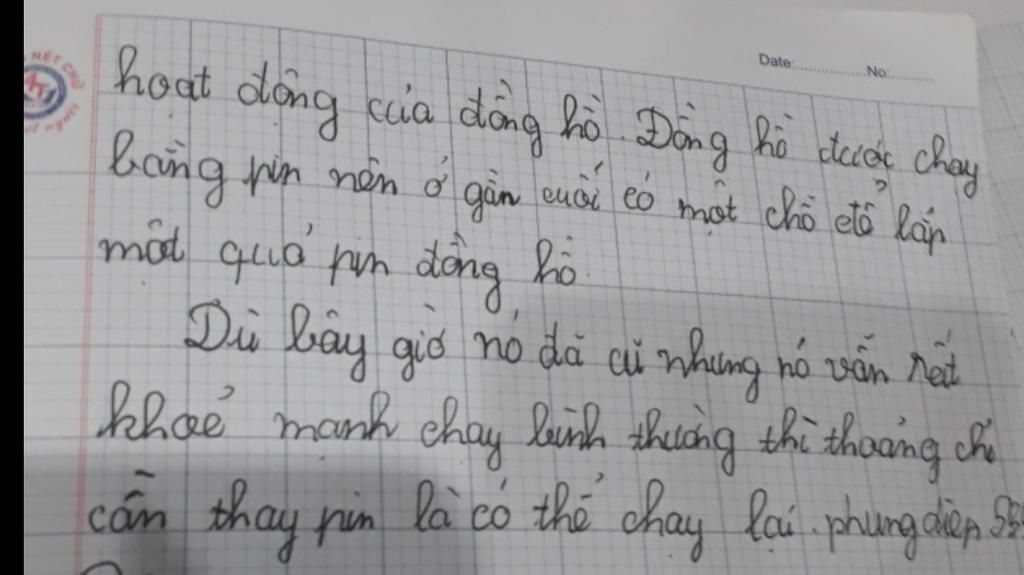 NÉT CHỮ
Date: No:
hoạt động của đồng hồ. Đồng hồ được chạy
bằng pin nên ở gần cuối có một chỗ để lắp
một quả pin đồng hồ.
Dù bây giờ nó đã cũ nhưng nó vẫn rất
khoẻ mạnh chạy bình thường thi thoảng chỉ
cần thay pin là có thể chạy lại.